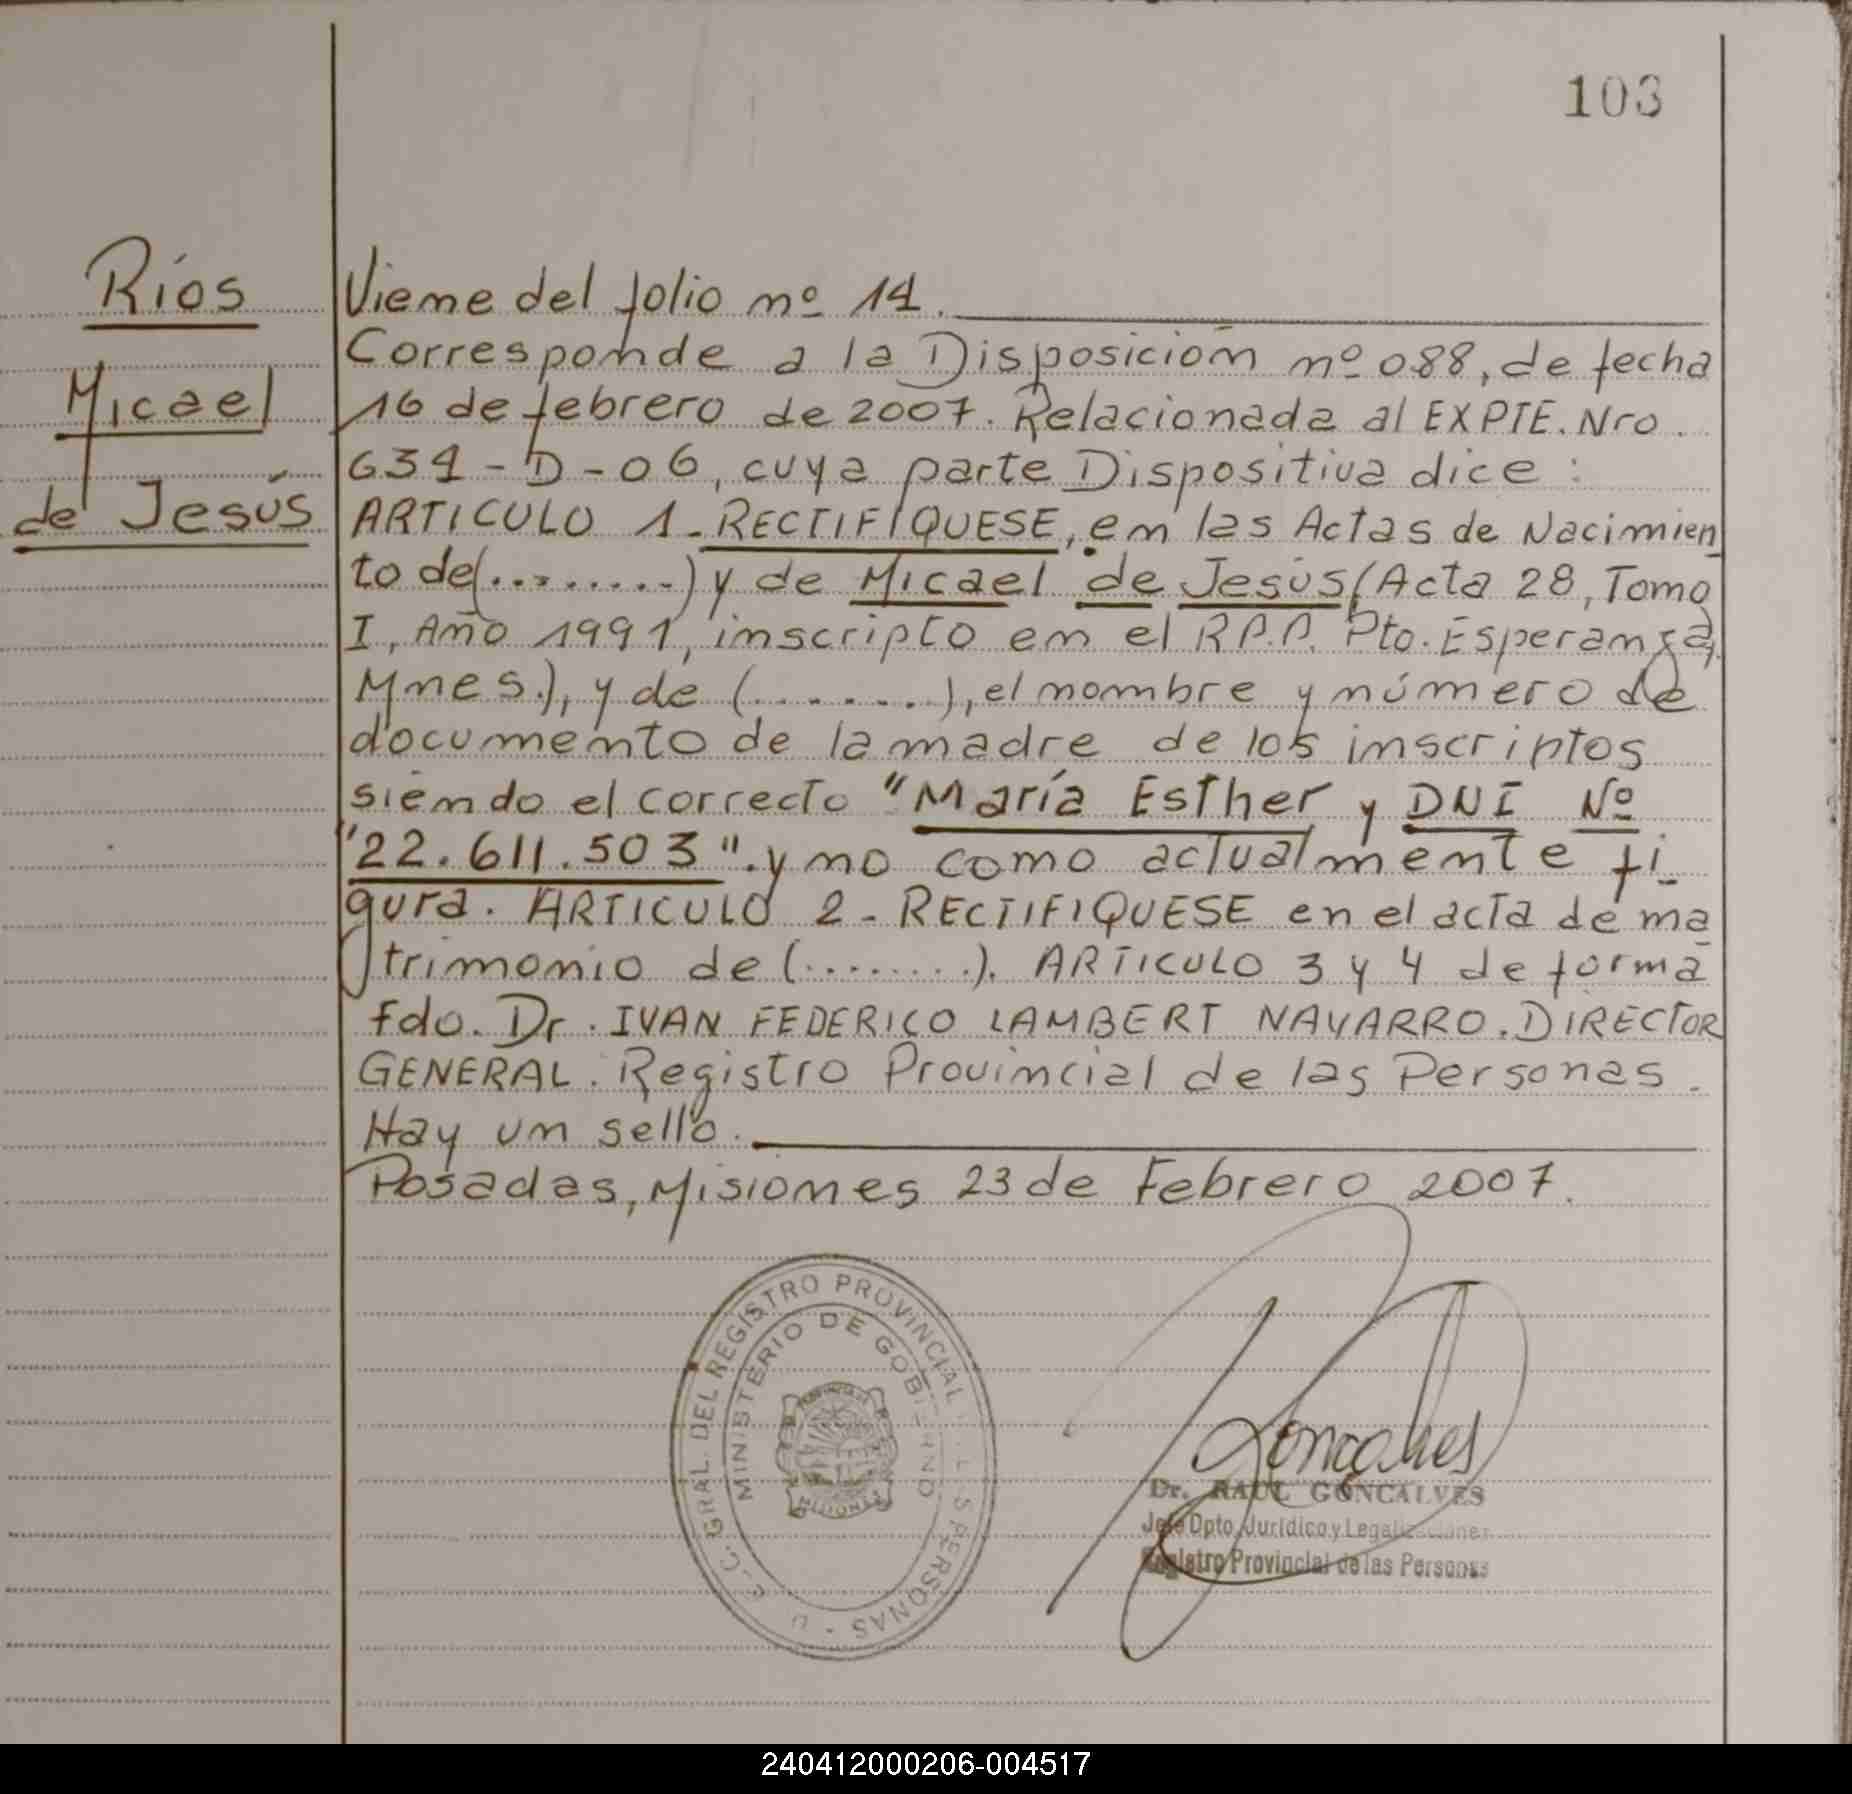 103
Ríos
Micael
de Jesús
Viene del folio nº 14.
Corresponde a la Disposición nº 088, de fecha
16 de febrero de 2007. Relacionada al EXPTE. Nro.
634-D-06, cuya parte Dispositiva dice:
ARTICULO 1-RECTIFIQUESE, en las Actas de Nacimien
to de(.........) y de Micael de Jesús (Acta 28, Tomo
I, Año 1991, inscripto en el R.P.P. Pto. Esperanza,
Mnes.), y de (........), el nombre y número de
documento de la madre de los inscriptos
siendo el correcto "María Esther y DNI Nº
"22.611.503". y no como actualmente fi-
gura. ARTICULO 2-RECTIFIQUESE en el acta de ma
trimonio de (........). ARTICULO 3 y 4 de forma
fdo. Dr. IVAN FEDERICO LAMBERT NAVARRO. DIRECTOR
GENERAL. Registro Provincial de las Personas.
Hay un sello.
Posadas, Misiones 23 de Febrero 2007.
C.C. GRAL. DEL REGISTRO PROVINCIAL PERSONAS - U
MINISTERIO DE GOBIERNO
MISIONES
Goncalves
Dr. RAUL GONCALVES
Jefe Dpto. Jurídico y Legalizaciones
Registro Provincial de las Personas
240412000206-004517